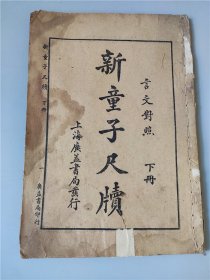 言文對照 下冊
新童子尺牘
上海廣益書局發行
新童子尺牘 下冊
廣益書局印行